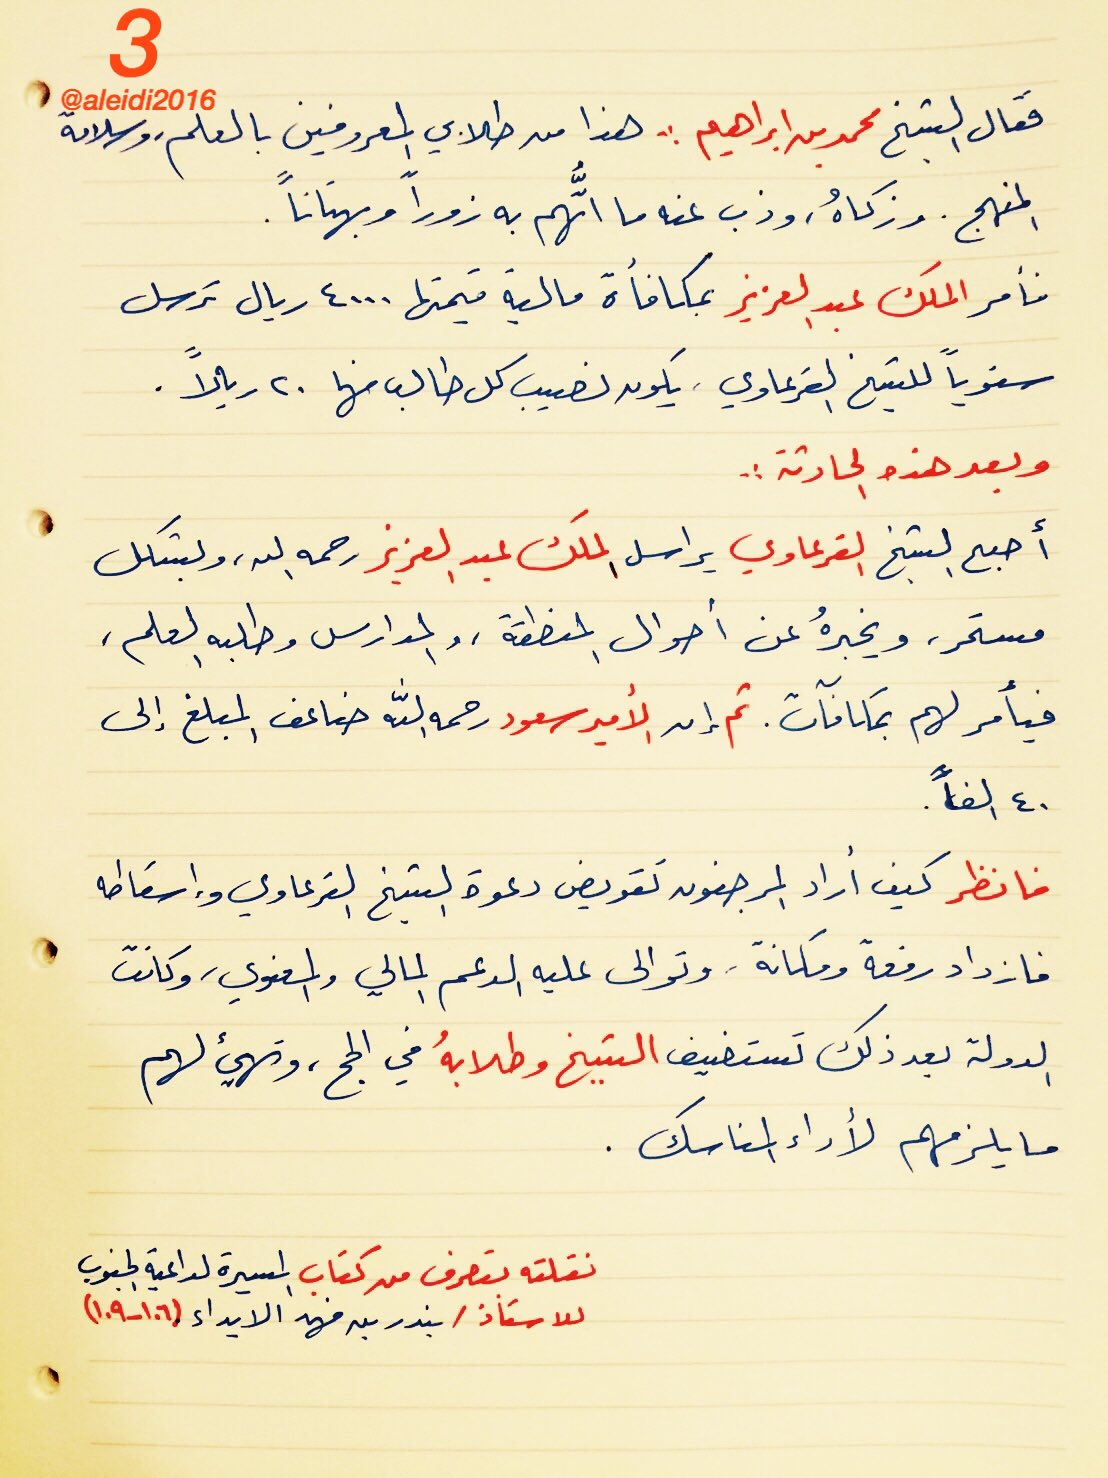 3
@aleidi2016
فقال الشيخ محمد بن ابراهيم :. هذا من طلابي المعروفين بالعلم، وسلامة
المنهج . وزكاهُ، وذب عنه ما اتُّهم به زوراً وبهتاناً .
فأمر الملك عبد العزيز بمكافأة مالية قيمتها ٤٠٠٠ ريال ترسل
سنوياً للشيخ القرعاوي، يكون نصيب كل طالب منها ٢٠ ريالاً .
وبعد هذه الحادثة :.
أصبح الشيخ القرعاوي يراسل الملك عبد العزيز رحمه الله، وبشكل
مستمر، ويخبرهُ عن أحوال المنطقة، والمدارس وطلبه العلم،
فيأمر لهم بمكافآت . ثم إن الأمير سعود رحمه الله ضاعف المبلغ إلى
٤٠ الفاً .
فانظر كيف أراد المرجفون تقويض دعوة الشيخ القرعاوي وإسقاطه
فازداد رفعة ومكانة، وتوالى عليه الدعم المالي والمعنوي، وكانت
الدولة بعد ذلك تستضيف الشيخ وطلابهُ في الحج، وتهيئ لهم
ما يلزمهم لأداء المناسك .
نقلته بتصرف من كتاب المسيرة لداعية الجنوب
للاستاذ / بندر بن فهد الايداء . (١٠٦-١٠٩)